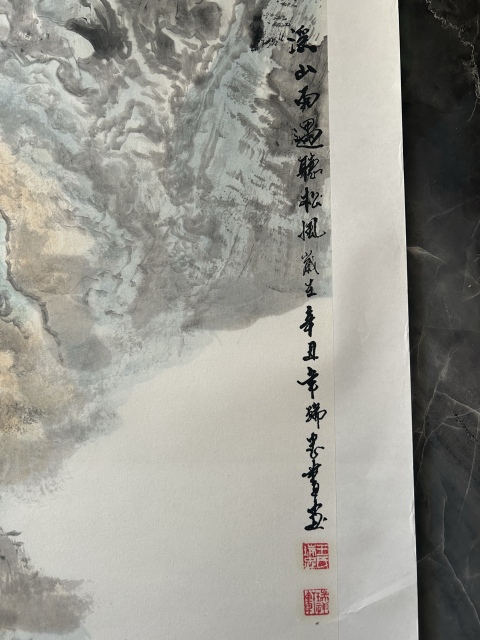 溪山雨過聽松風歲在辛丑年瑞忠書畫